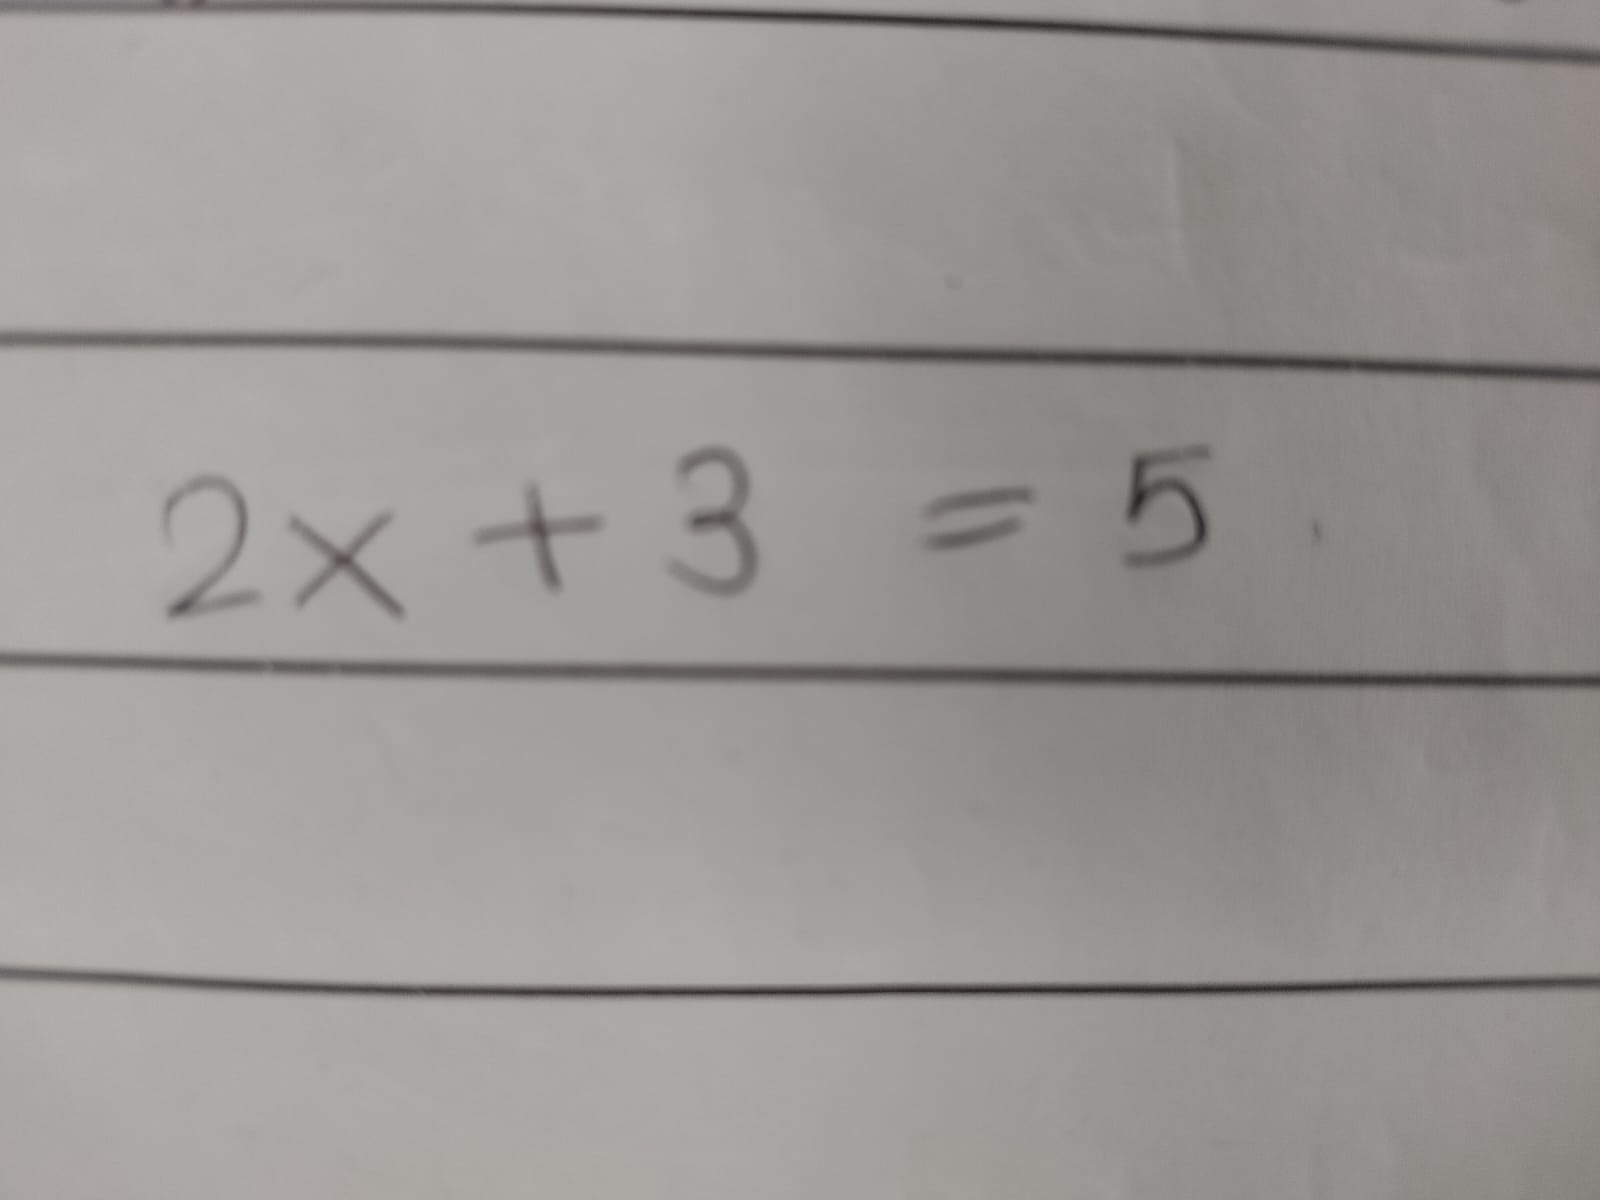 2x + 3 = 5.